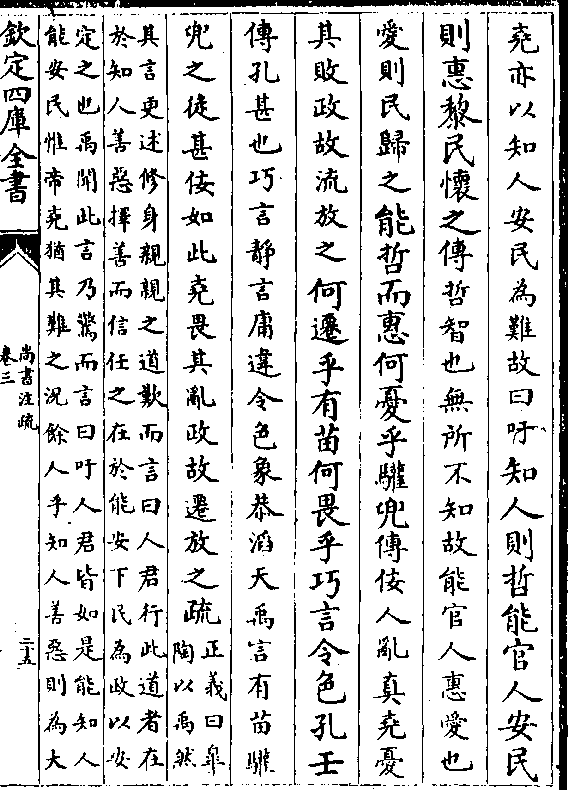 堯亦以知人安民為難故曰吁知人則哲能官人安民
則惠黎民懷之傳哲智也無所不知故能官人惠愛也
愛則民歸之能哲而惠何憂乎驩兜傳佞人亂真堯憂
其敗政故流放之何遷乎有苗何畏乎巧言令色孔壬
傳孔甚也巧言靜言庸違令色象恭滔天禹言有苗驩
兜之徒甚佞如此堯畏其亂政故遷放之疏
正義曰臯
陶以禹然
其言更述修身親親之道歎而言曰人君行此道者在
於知人善惡擇善而信任之在於能安下民為政以安
定之也禹聞此言乃驚而言曰吁人君皆如是能知人
能安民惟帝堯猶其難之況餘人乎知人善惡則為大
欽定四庫全書
尚書注疏
卷三
二十五